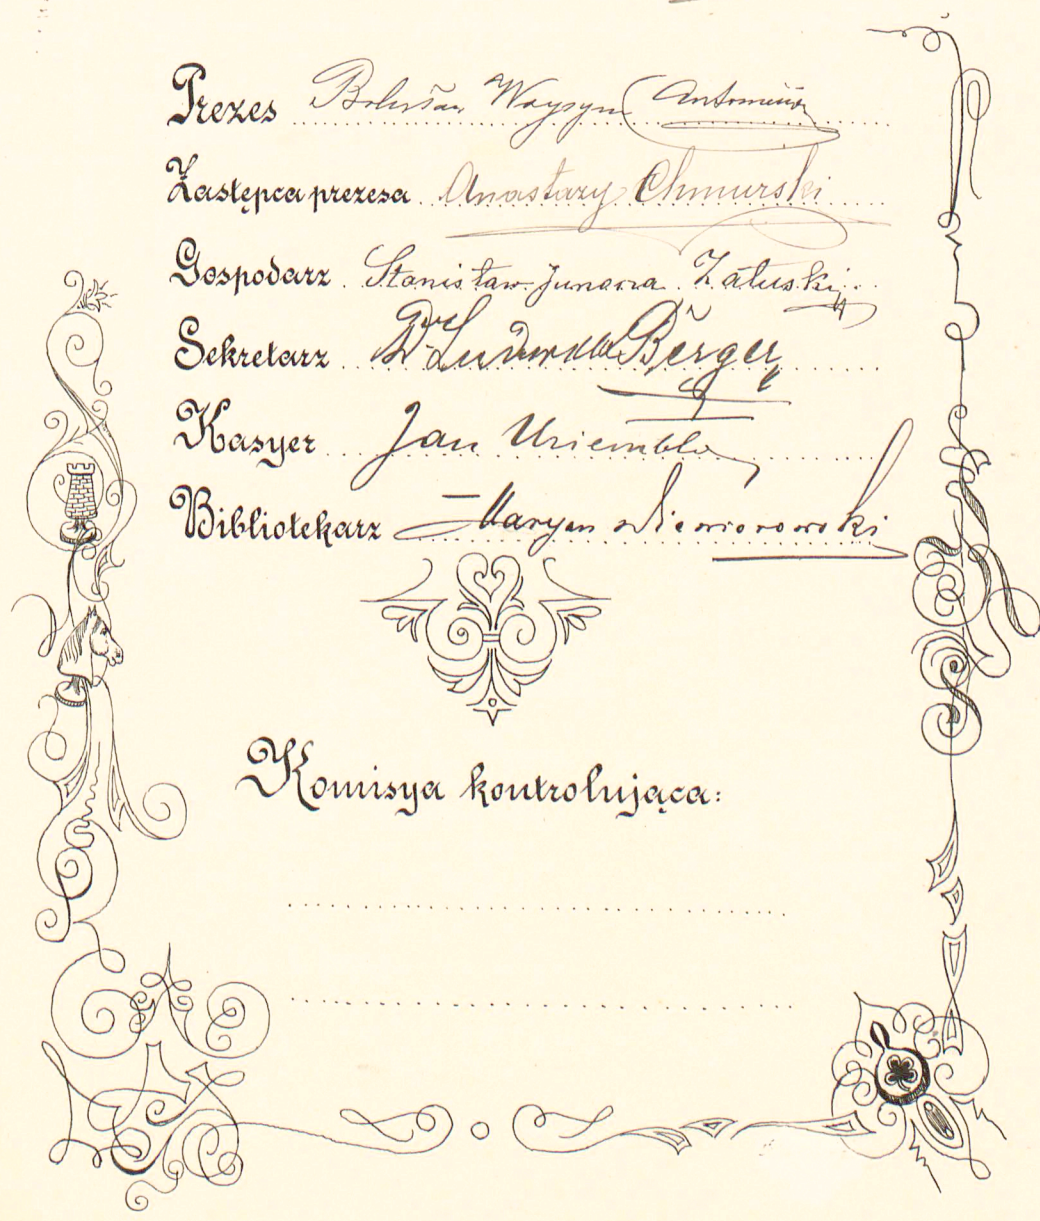 Prezes Antoniewicz
Zastępca prezesa Anastazy Chmurski
Gospodarz Stanisław Junosza Załuski
Sekretarz Dr Ludwik Berger
Kasyer Jan Uriembło
Bibliotekarz Maryan
Komisya kontrolująca: